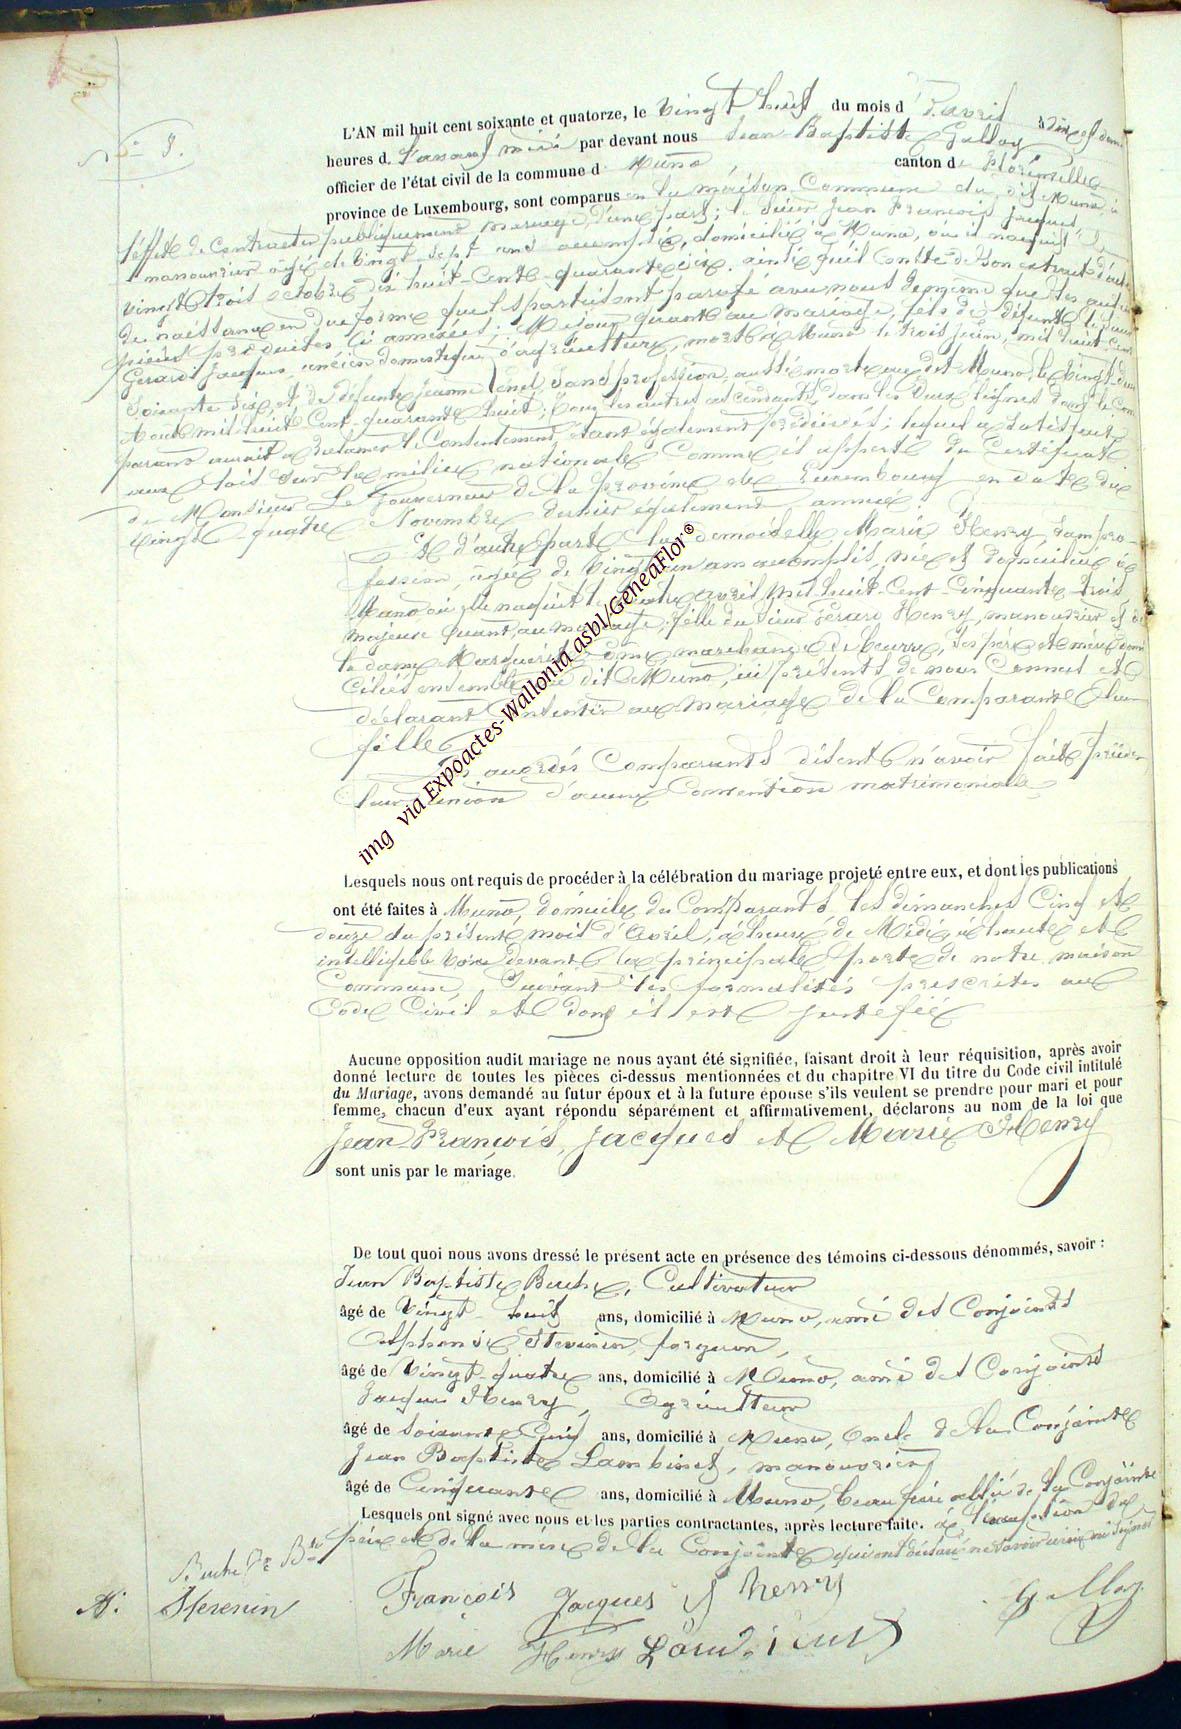 N° 8.
L'AN mil huit cent soixante et quatorze, le Vingt huit du mois d'Avril à dix et demi
heures d. l'avant midi par devant nous Jean-Baptiste Gallay
officier de l'état civil de la commune d Muno canton de Florenville
province de Luxembourg, sont comparus en la maison Commune du dit Muno, à
l'effet de contracter publiquement mariage d'une part; le Sieur Jean François Jacques
manouvrier âgé de Vingt Sept ans accomplis, domicilié à Muno, où il naquit le
Vingt trois octobre dix huit-Cent-quarante six, ainsi qu'il conste de son extrait d'acte
de naissance en due forme que les parties ont paraphé avec nous de même que les autres
pièces produites ci annexées; Majeur quant au mariage, fils de défunt le sieur
Gérard Jacques ancien domestique d'agriculture, mort à Muno le trois juin, mil huit cent
Soixante six, et de défunte Jeanne sans profession, aussi morte au dit Muno, le Vingt deux
Août mil huit Cent quarante huit; tous les autres ascendants dans les deux lignes dont le Com
parant aurait à réclamer le Consentement, étant également prédécédés; lequel a satisfait
aux lois sur la milice nationale Comme il appert du Certificat
de Monsieur Le Gouverneur de la province de Luxembourg en date du
vingt-quatre Novembre dernier également annexé
Et d'autre part la demoiselle Marie Henry, sans pro
fession, âgée de Vingt un ans accomplis, née et domiciliée à
Muno où elle naquit le avril mil huit-Cent-Cinquante trois
majeure quant au mariage, fille du sieur Gérard Henry, manouvrier et de
la dame Marguerite marchande de beurre, ses père et mère domi
ciliés ensemble au dit Muno, ici présents, de nous Connus et
déclarant Consentir au mariage de la Comparante leur
fille
Les Comparants disent n'avoir fait précéder
leur union d'aucune Convention matrimoniale
img via Expoactes-Wallonia asbl/GeneaFlor®
Lesquels nous ont requis de procéder à la célébration du mariage projeté entre eux, et dont les publications
ont été faites à Muno, domicile des Comparants les dimanches Cinq et
douze du présent mois d'Avril, à l'heure de Midi, à haute et
intelligible Voix devant la principale porte de notre maison
Commune, Suivant les formalités prescrites au
Code Civil et dont il est justifié
Aucune opposition audit mariage ne nous ayant été signifiée, faisant droit à leur réquisition, après avoir
donné lecture de toutes les pièces ci-dessus mentionnées et du chapitre VI du titre du Code civil intitulé
du Mariage, avons demandé au futur époux et à la future épouse s'ils veulent se prendre pour mari et pour
femme, chacun d'eux ayant répondu séparément et affirmativement, déclarons au nom de la loi que
Jean-François, Jacques et Marie Henry
sont unis par le mariage.
De tout quoi nous avons dressé le présent acte en présence des témoins ci-dessous dénommés, savoir :
Jean Baptiste Buche, Cultivateur
âgé de Vingt-huit ans, domicilié à Muno, ami des Conjoints
Alphonse Stevenin, forgeron,
âgé de Vingt-quatre ans, domicilié à Muno, ami des Conjoints
Jacques Henry, Agriculteur
âgé de Soixante Cinq ans, domicilié à Muno, Oncle de la Conjointe
Jean Baptiste Lambinet, manouvrier
âgé de Cinquante ans, domicilié à Muno, beau frère allié de la Conjointe
Lesquels ont signé avec nous et les parties contractantes, après lecture faite. à l'exception du
père et de la mère de la Conjointe qui ont déclaré ne savoir écrire ni signer
Buche J Bte
A. Stevenin
François Jacques J henry
Gallay
Marie Henry Lambinet